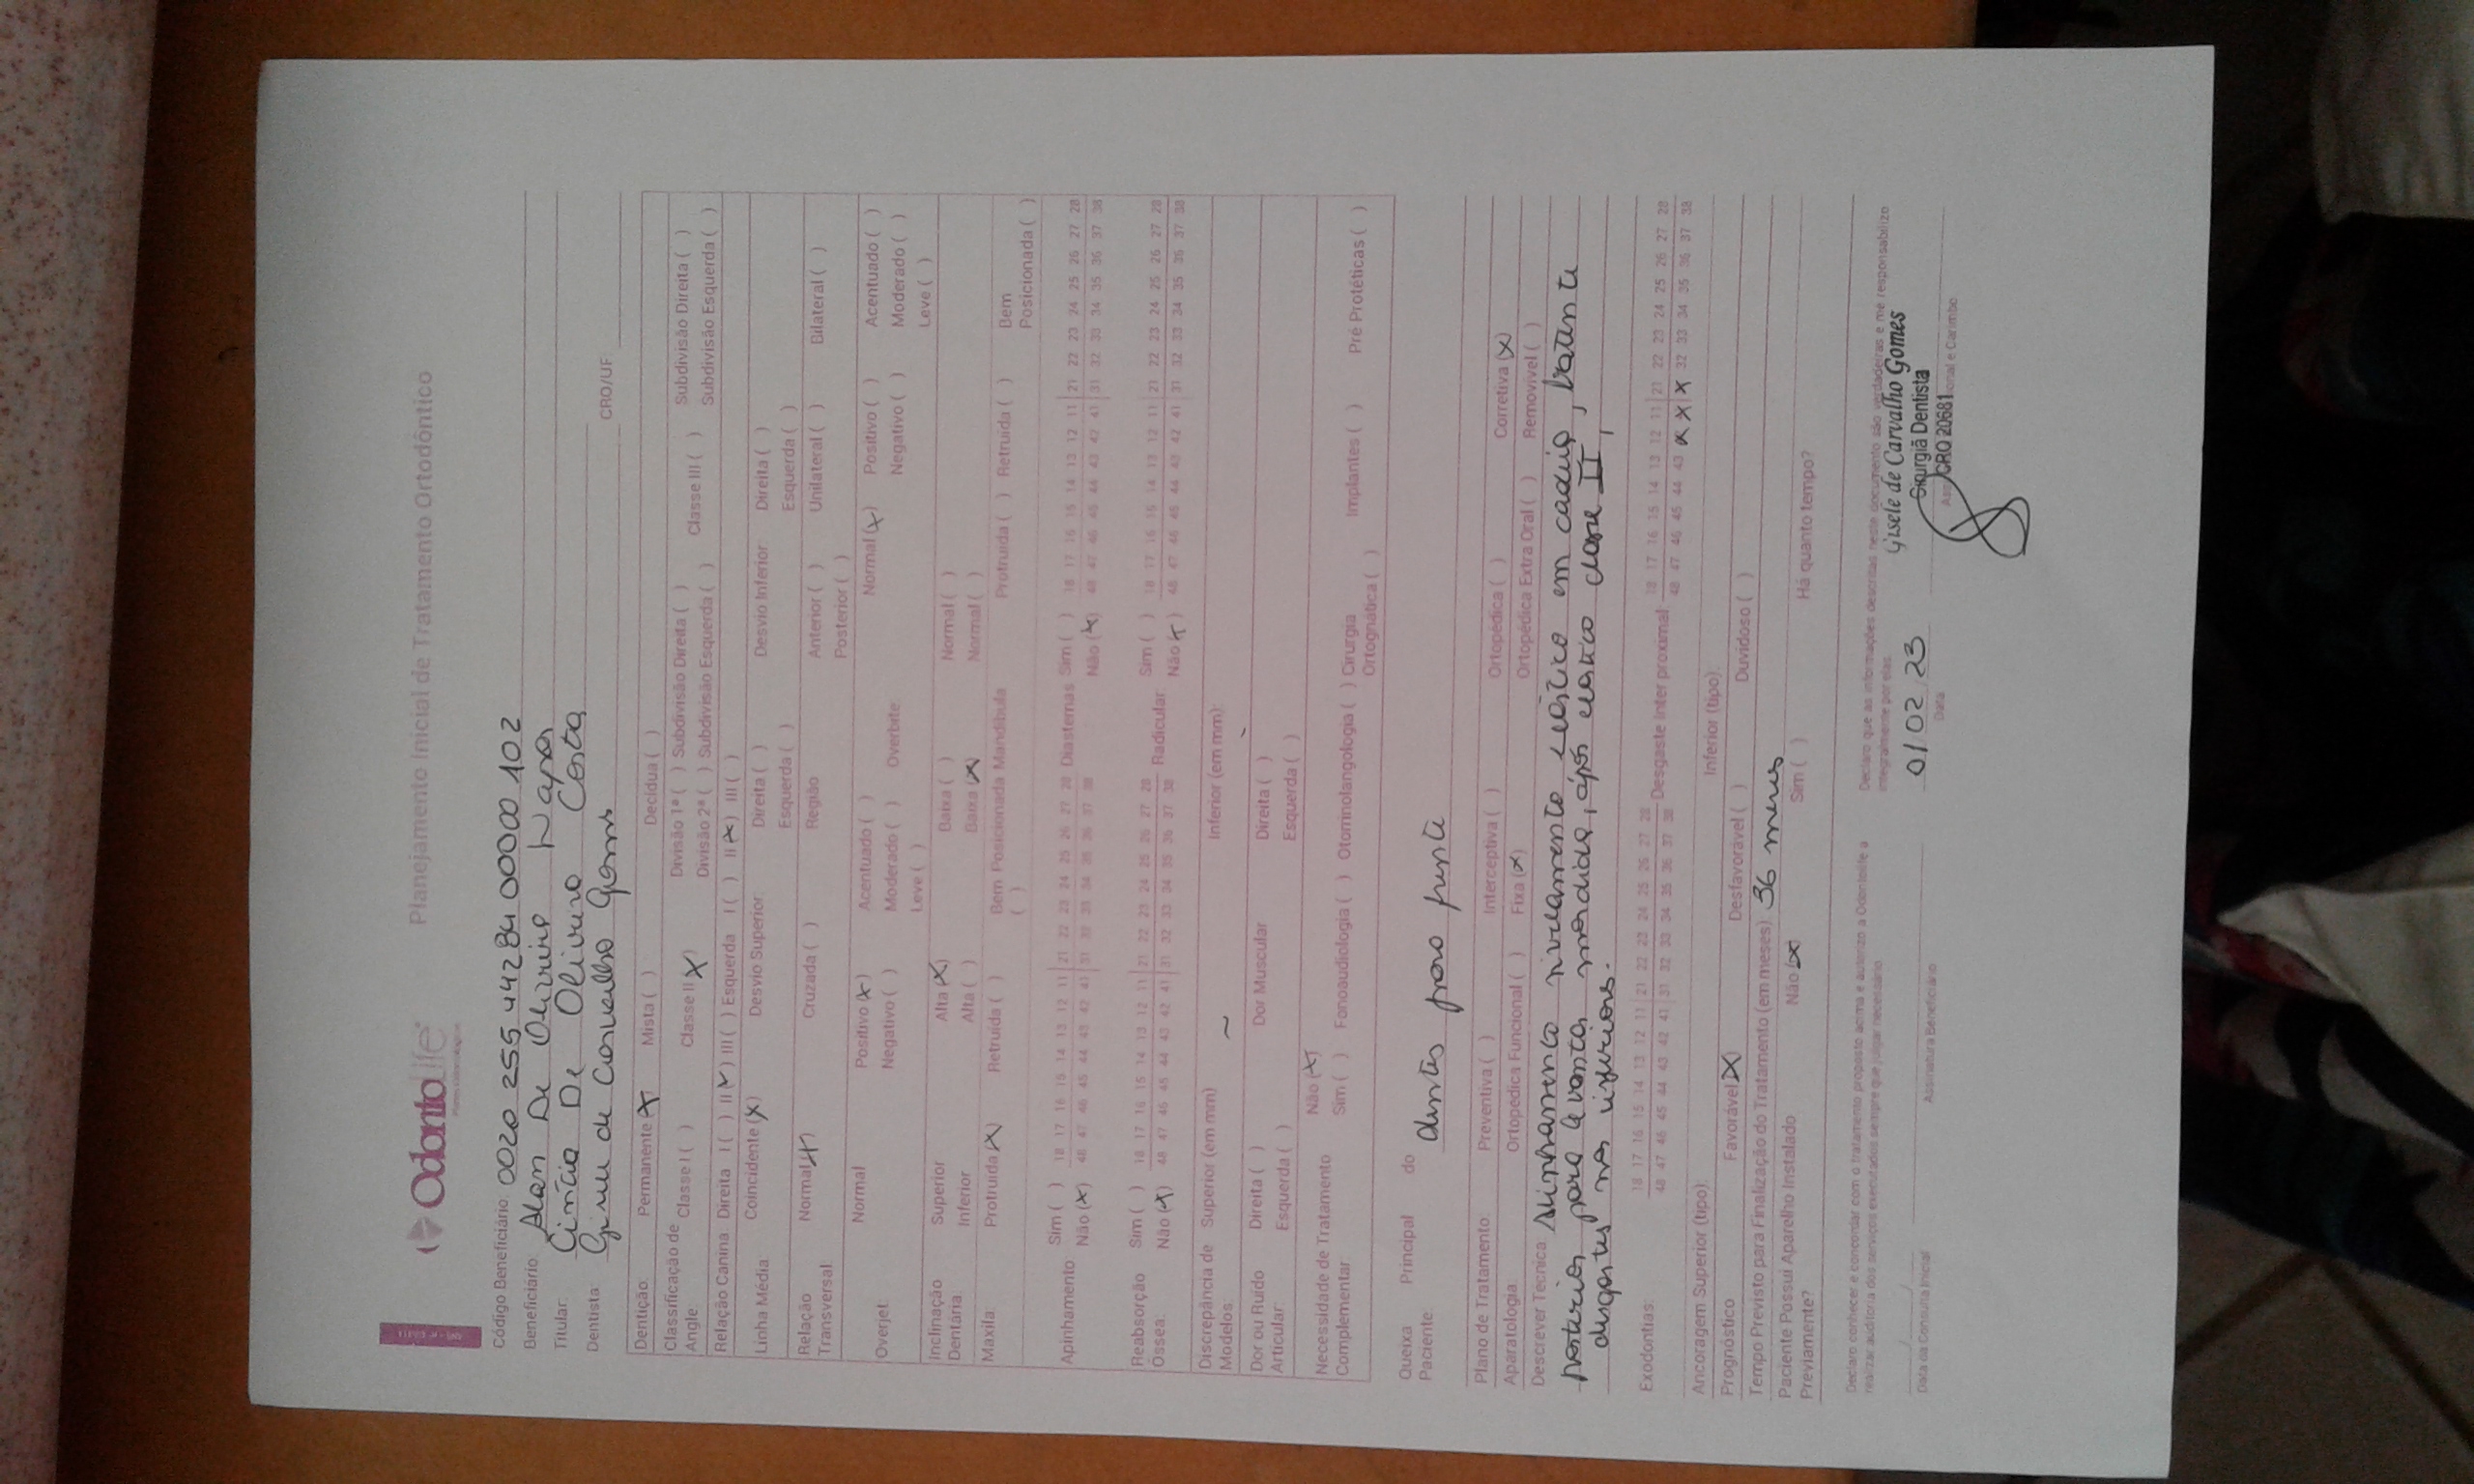 OdontoLife Planejamento Inicial de Tratamento Ortodôntico
Código Beneficiário 0020 255 442 84 00000 102
Beneficiário: Alan De Oliveira
Titular: Cinícia De Oliveira Costa
Dentista: Gisele de Carvalho Gomes CRO/UF
Dentição Permanente (X) Mista ( ) Decídua ( )
Classificação de Angle Classe I ( ) Classe II (X) Divisão 1ª ( ) Subdivisão Direita ( ) Classe III ( ) Subdivisão Direita ( )
Divisão 2ª ( ) Subdivisão Esquerda ( ) Subdivisão Esquerda ( )
Relação Canina: Direita I ( ) II (X) III ( ) Esquerda I ( ) II (X) III ( )
Linha Média: Coincidente (X) Desvio Superior: Direita ( ) Desvio Inferior: Direita ( )
Esquerda ( ) Esquerda ( )
Relação Transversal: Normal (X) Cruzada ( ) Região Anterior ( ) Unilateral ( ) Bilateral ( )
Posterior ( )
Overjet: Normal Positivo (X) Acentuado ( ) Overbite: Normal (X) Positivo ( ) Acentuado ( )
Negativo ( ) Moderado ( ) Negativo ( ) Moderado ( )
Leve ( ) Leve ( )
Inclinação Dentária: Superior Alta (X) Baixa ( ) Normal ( )
Inferior Alta ( ) Baixa (X) Normal ( )
Maxila: Protruída (X) Retruída ( ) Bem Posicionada ( ) Mandíbula Protruída ( ) Retruída ( ) Bem Posicionada ( )
Apinhamento: Sim ( ) 18 17 16 15 14 13 12 11 21 22 23 24 25 26 27 28 Diastemas Sim ( ) 18 17 16 15 14 13 12 11 21 22 23 24 25 26 27 28
Não (X) 48 47 46 45 44 43 42 41 31 32 33 34 35 36 37 38 Não (X) 48 47 46 45 44 43 42 41 31 32 33 34 35 36 37 38
Reabsorção Óssea: Sim ( ) 18 17 16 15 14 13 12 11 21 22 23 24 25 26 27 28 Radicular Sim ( ) 18 17 16 15 14 13 12 11 21 22 23 24 25 26 27 28
Não (X) 48 47 46 45 44 43 42 41 31 32 33 34 35 36 37 38 Não (X) 48 47 46 45 44 43 42 41 31 32 33 34 35 36 37 38
Discrepância de Modelos: Superior (em mm) ~ Inferior (em mm): -
Dor ou Ruído Articular: Direita ( ) Dor Muscular Direita ( )
Esquerda ( ) Esquerda ( )
Necessidade de Tratamento Complementar: Não (X)
Sim ( ) Fonoaudiologia ( ) Otorrinolangologia ( ) Cirurgia Ortognática ( ) Implantes ( ) Pré Protéticas ( )
Queixa Principal do Paciente: dentes para frente
Plano de Tratamento: Preventiva ( ) Interceptiva ( ) Ortopédica ( ) Corretiva (X)
Aparatologia Ortopédica Funcional ( ) Fixa (X) Ortopédica Extra Oral ( ) Removível ( )
Descrever Técnica: Alinhamento nivelamento elástico em cadeia, batente
posterior para levantar mordida, após elástico classe II,
desgastes nos inferiores.
Exodontias: 18 17 16 15 14 13 12 11 21 22 23 24 25 26 27 28 Desgaste Inter proximal: 18 17 16 15 14 13 12 11 21 22 23 24 25 26 27 28
48 47 46 45 44 43 42 41 31 32 33 34 35 36 37 38 48 47 46 45 44 43 X X X 32 33 34 35 36 37 38
Ancoragem Superior (tipo): Inferior (tipo):
Prognóstico Favorável (X) Desfavorável ( ) Duvidoso ( )
Tempo Previsto para Finalização do Tratamento (em meses): 36 meses
Paciente Possui Aparelho Instalado Previamente? Não (X) Sim ( ) Há quanto tempo?
Declaro conhecer e concordar com o tratamento proposto acima e autorizo a Odontolife a
realizar auditoria dos serviços executados sempre que julgar necessário
Declaro que as informações descritas neste documento são verdadeiras e me responsabilizo
integralmente por elas.
Gisele de Carvalho Gomes
Cirurgiã Dentista
CRO 20681
01 02 23
Data da Consulta Inicial Assinatura Beneficiário Data